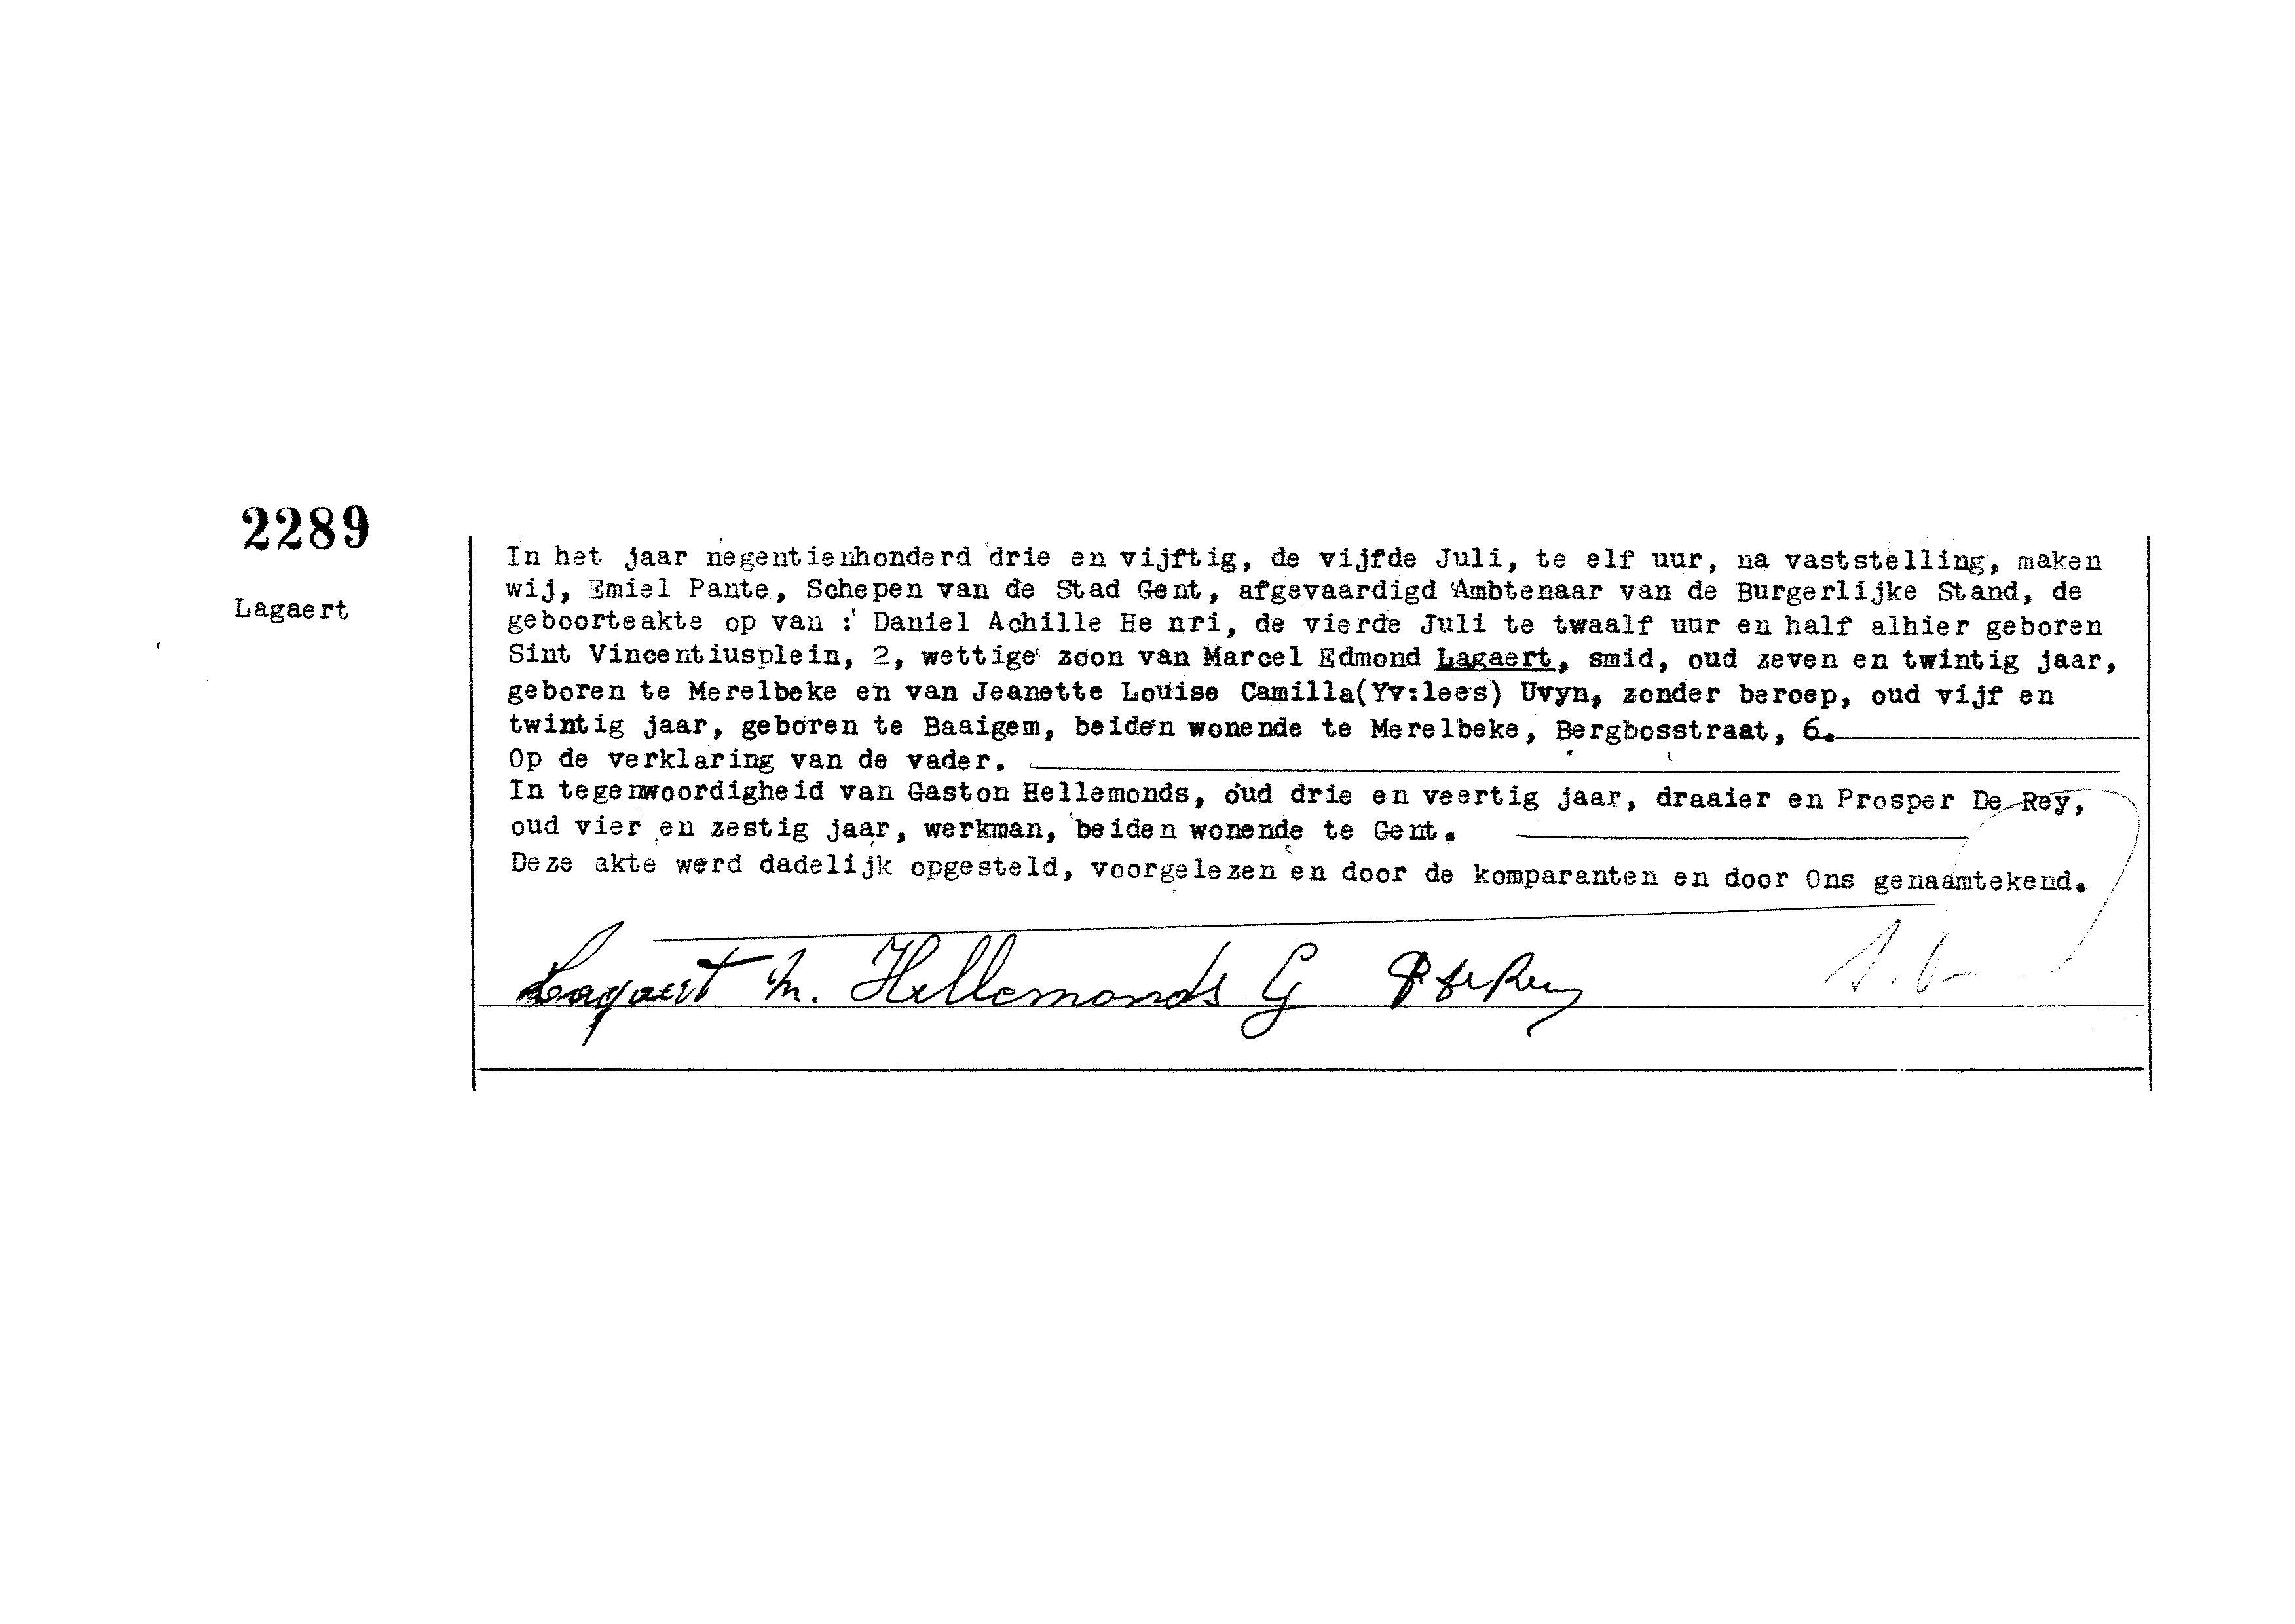 2289
Lagaert
In het jaar negentienhonderd drie en vijftig, de vijfde Juli, te elf uur, na vaststelling, maken
wij, Emiel Pante, Schepen van de Stad Gent, afgevaardigd Ambtenaar van de Burgerlijke Stand, de
geboorteakte op van : Daniel Achille He nri, de vierde Juli te twaalf uur en half alhier geboren
Sint Vincentiusplein, 2, wettige zoon van Marcel Edmond Lagaert, smid, oud zeven en twintig jaar,
geboren te Merelbeke en van Jeanette Louise Camilla(Yv:lees) Uvyn, zonder beroep, oud vijf en
twintig jaar, geboren te Baaigem, beiden wonende te Merelbeke, Bergbosstraat, 6.
Op de verklaring van de vader.
In tegenwoordigheid van Gaston Hellemonds, oud drie en veertig jaar, draaier en Prosper De Rey,
oud vier en zestig jaar, werkman, beiden wonende te Gent.
Deze akte werd dadelijk opgesteld, voorgelezen en door de komparanten en door Ons genaamtekend.
Lagaert M. Hellemonds G P De Rey